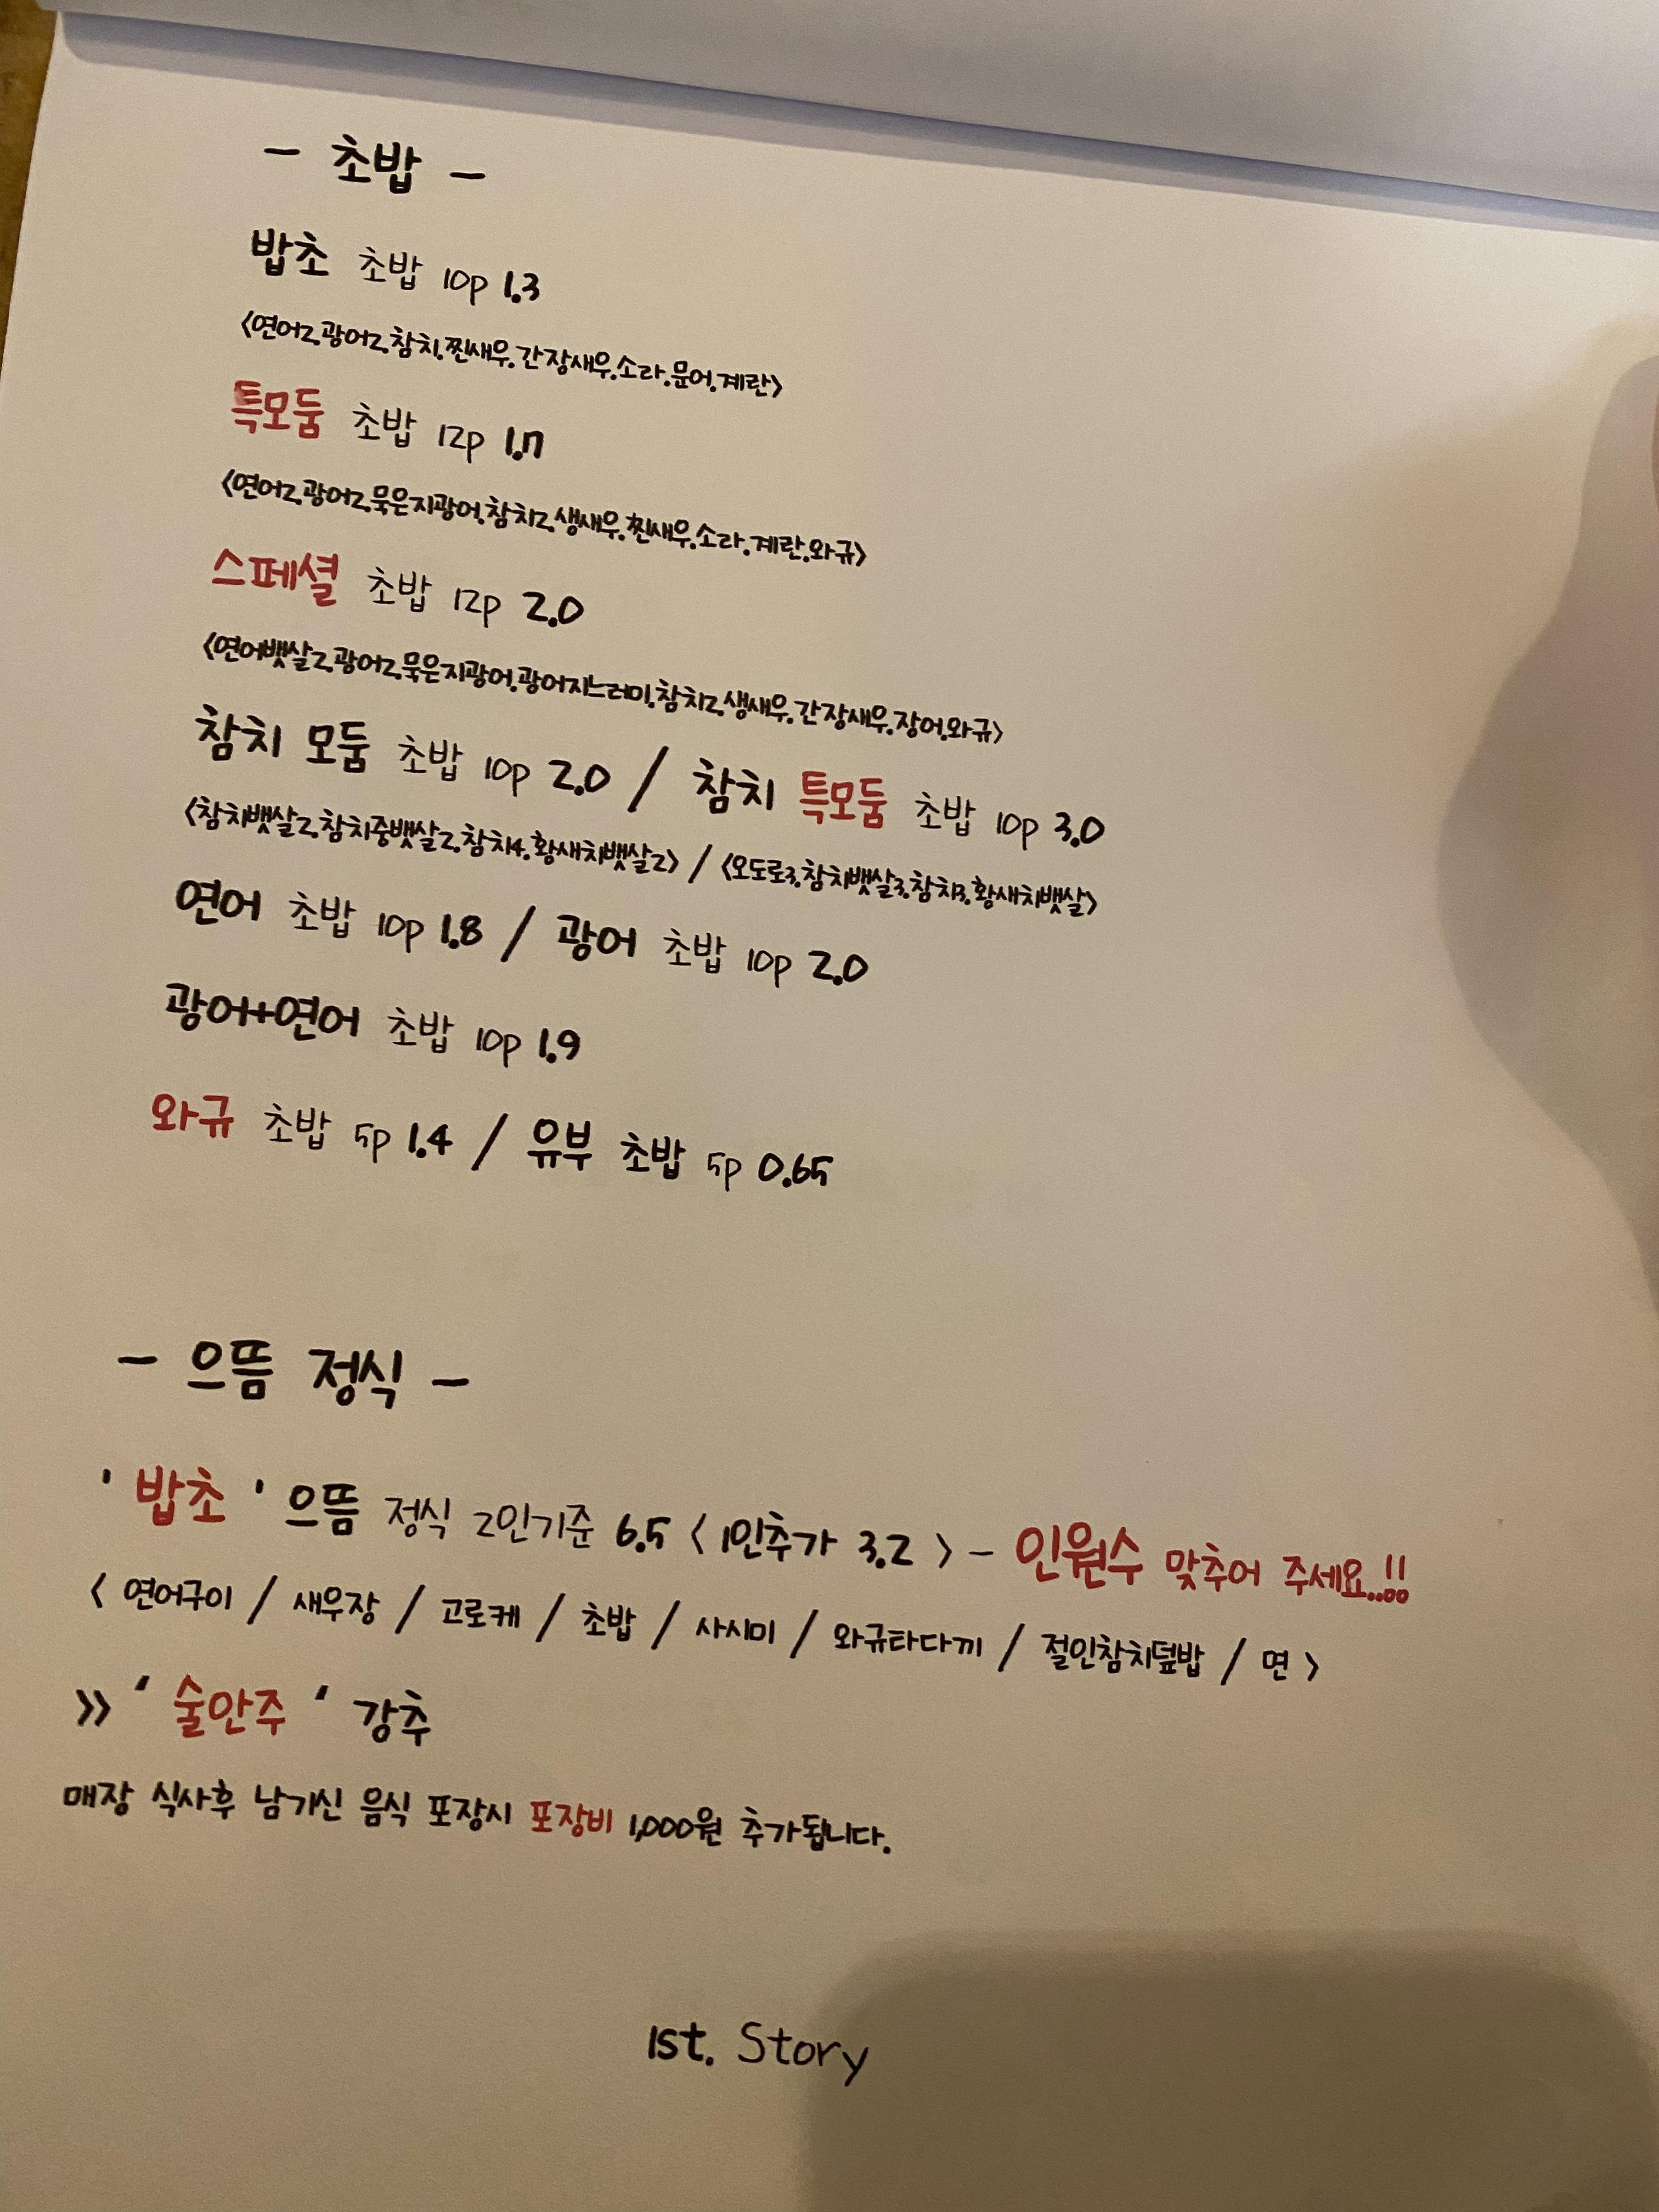 - 초밥 -
밥초 초밥 10p 1.3
<연어2.광어2.참치.찐새우.간장새우.소라.문어.계란>
특모둠 초밥 12p 1.7
<연어2.광어2.묵은지광어.참치2.생새우.찐새우.소라.계란.와규>
스페셜 초밥 12p 2.0
<연어뱃살2.광어2.묵은지광어.광어지느러미.참치2.생새우.간장새우.장어.와규>
참치 모둠 초밥 10p 2.0 / 참치 특모둠 초밥 10p 3.0
<참치뱃살2.참치중뱃살2.참치4.황새치뱃살2> / <오도로3.참치뱃살3.참치3.황새치뱃살>
연어 초밥 10p 1.8 / 광어 초밥 10p 2.0
광어+연어 초밥 10p 1.9
와규 초밥 5p 1.4 / 유부 초밥 5p 0.65
- 으뜸 정식 -
' 밥초 ' 으뜸 정식 2인기준 6.5 < 1인추가 3.2 > - 인원수 맞추어 주세요..!!
< 연어구이 / 새우장 / 고로케 / 초밥 / 사시미 / 와규타다끼 / 절인참치덮밥 / 면 >
>> ' 술안주 ' 강추
매장 식사후 남기신 음식 포장시 포장비 1,000원 추가됩니다.
1st. Story